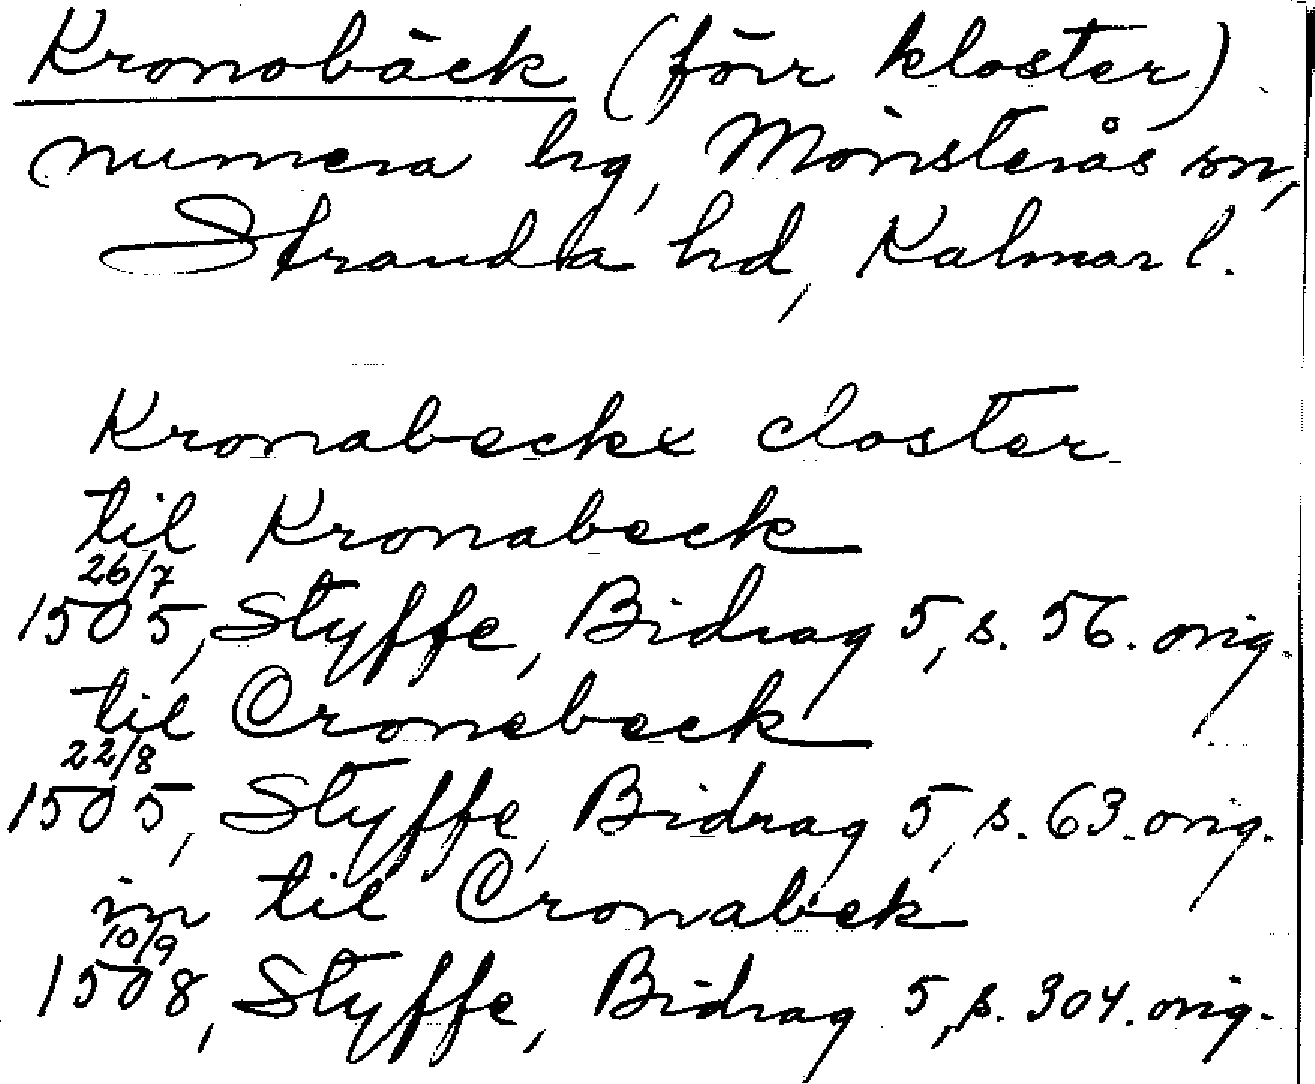 Kronobäck (förr kloster)
numera hg, Mönsterås sn,
Stranda hd, Kalmar l.
Kronabeckx closter
til Kronabeck
26/7
1505, Styffe, Bidrag 5, s. 56. orig.
til Cronebeck
22/8
1505, Styffe, Bidrag 5, s. 63. orig.
in til Cronabek
10/9
1508, Styffe, Bidrag 5, s. 304. orig.